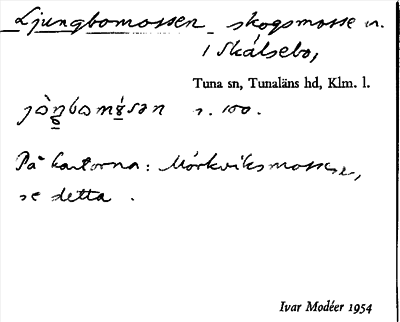 Ljungbomossen skogsmosse n.
i Skälsebo,
Tuna sn, Tunaläns hd, Klm. l.
s. 100.
På kartorna: Mörkviksmossen,
se detta.
Ivar Modéer 1954